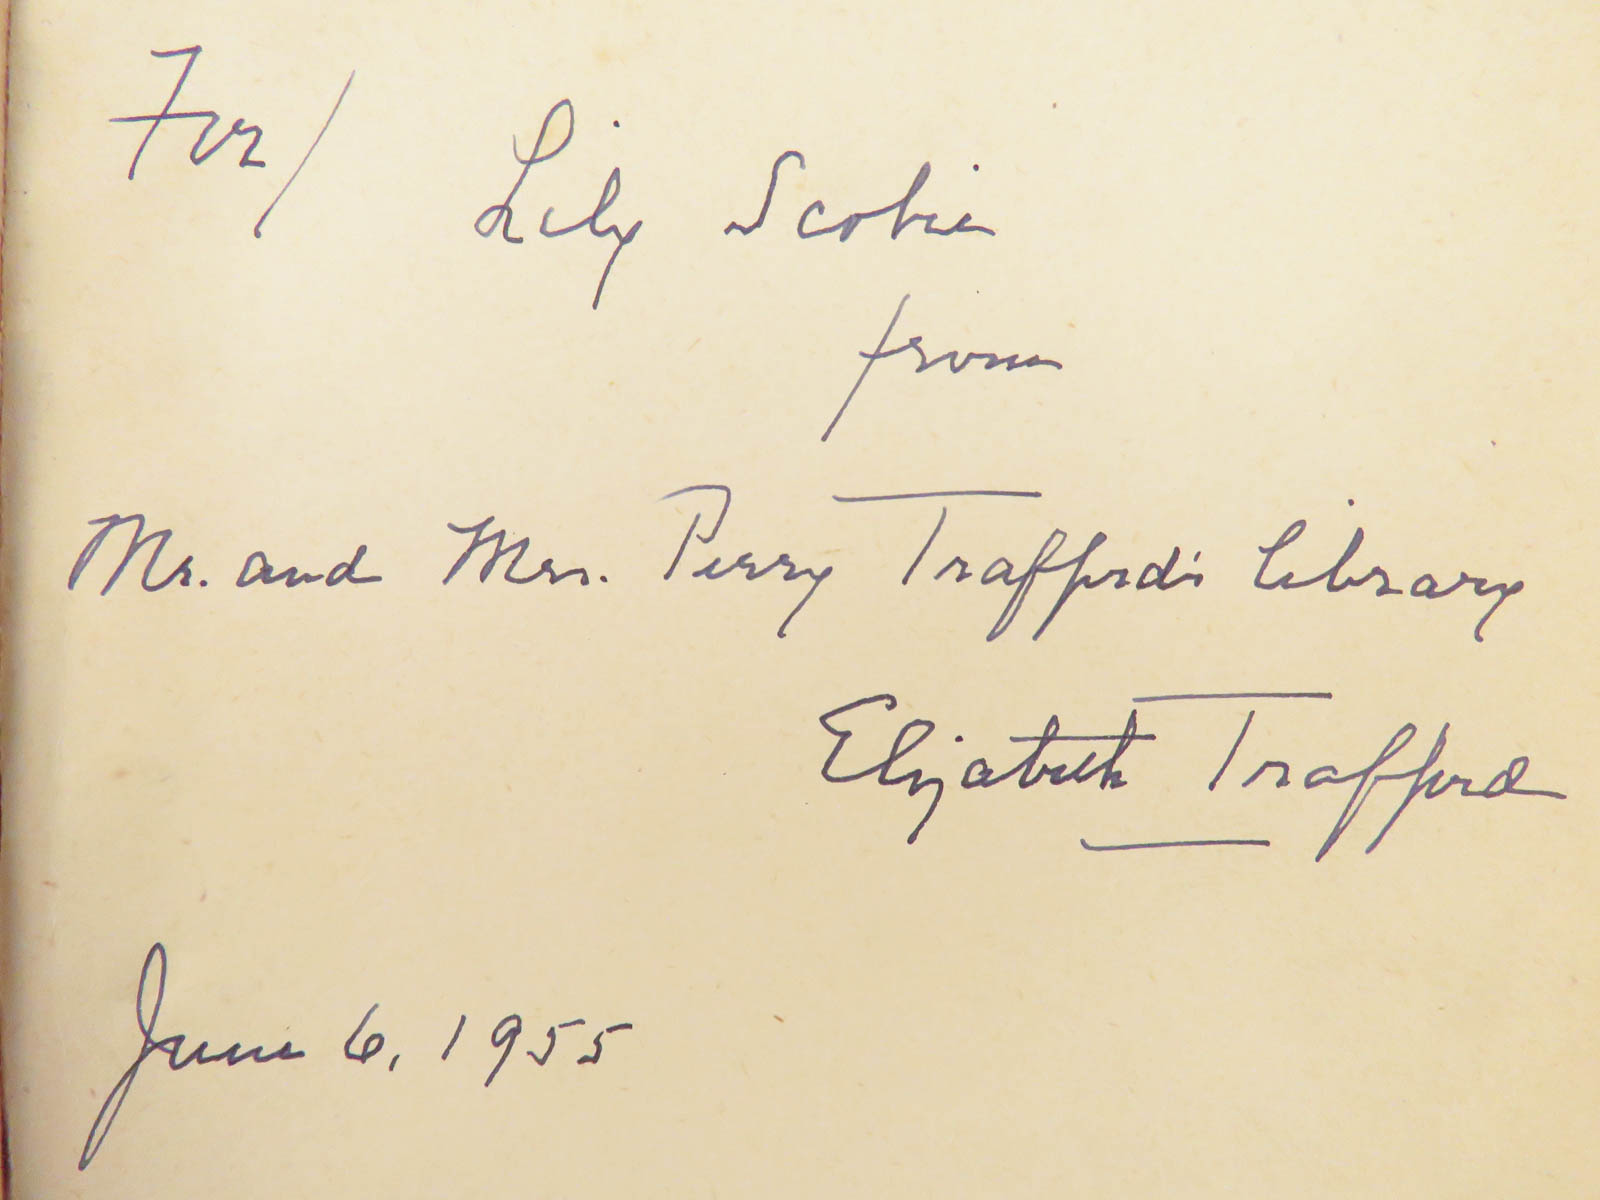 For/ Lily Scobie
from
Mr. and Mrs. Perry Trafford's library
Elizabeth Trafford
June 6, 1955